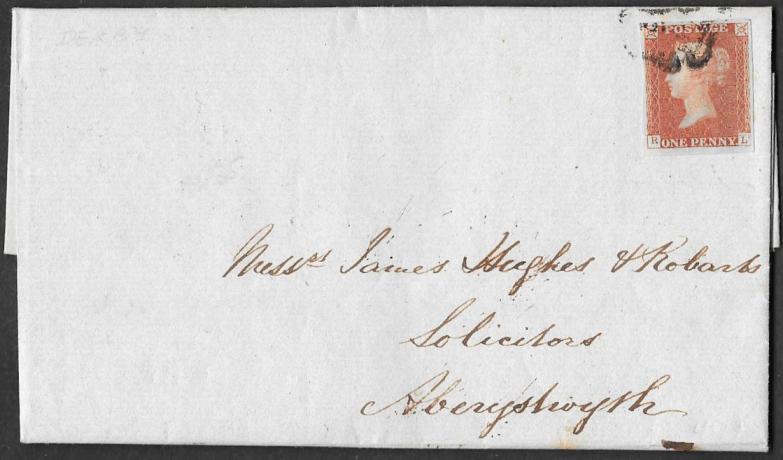 DERBY
POSTAGE
R ONE PENNY L
Messrs James Hughes & Robarts
Solicitors
Aberystwyth